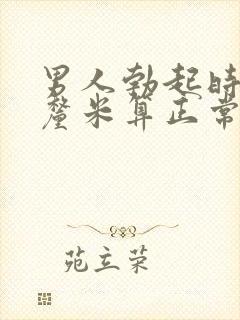 男人勃起时
厘米算正常
苑立荣